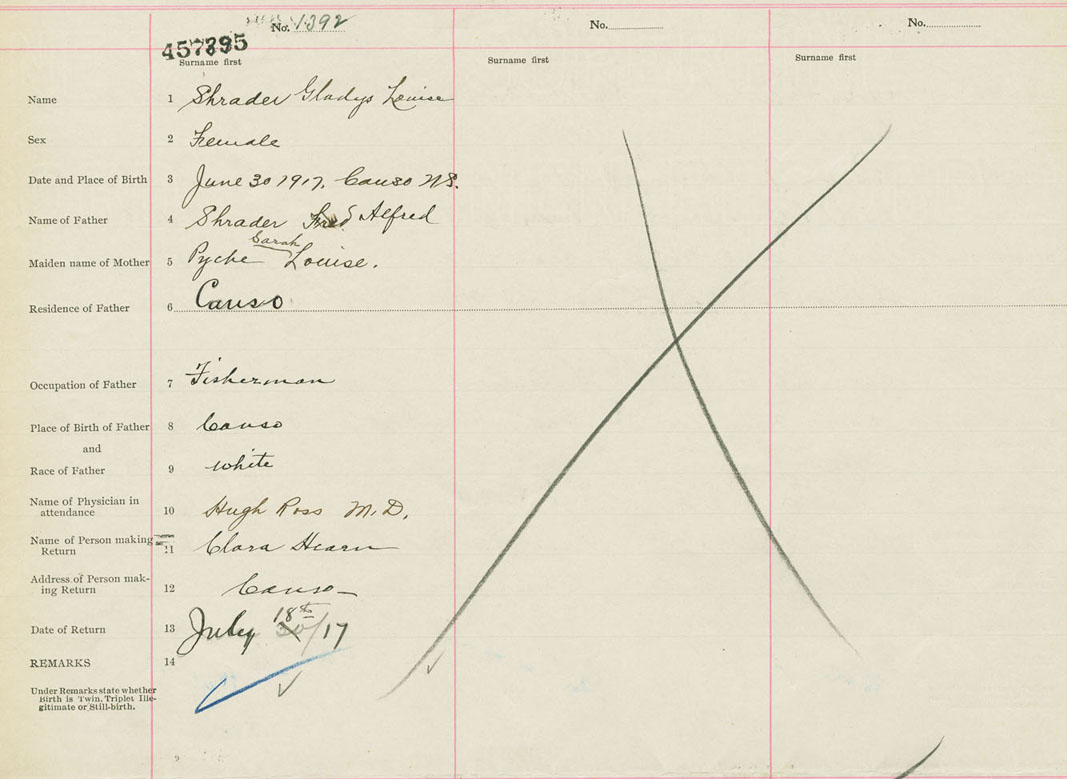 No. 1392
No.
No.
457395
Surname first
Surname first
Surname first
Name 1 Shrader Gladys Louise
Sex 2 Female
Date and Place of Birth 3 June 30 1917, Canso N.S.
Name of Father 4 Shrader Fred S Alfred
Sarah
Maiden name of Mother 5 Pyche Louise.
Residence of Father 6 Canso
Occupation of Father 7 Fisherman
Place of Birth of Father 8 Canso
and
Race of Father 9 white
Name of Physician in
attendance 10 Hugh Ross M.D.
Name of Person making
Return 11 Clara Hearn
Address of Person mak-
ing Return 12 Canso
18th
Date of Return 13 July 30/17
REMARKS 14
Under Remarks state whether
Birth is Twin, Triplet Ille-
gitimate or Still-birth.